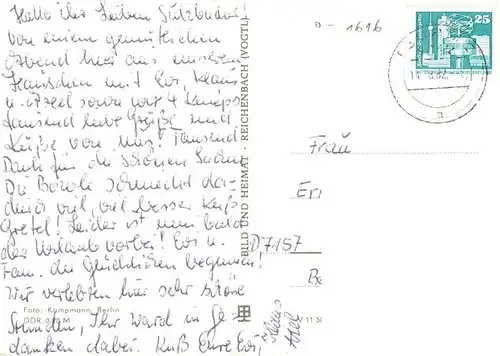 Hallo ihr lieben Sulzbacher!
Von einem gemütlichen
Abend hier aus unserem
Häuschen mit Evi, Klaus
u. Axel sowie wir 4
tausend liebe Grüße und
Küße von uns! Tausend
Dank für die schönen Sachen
Die Bowle schmeckt da-
durch viel, viel besser
Gretel! Leider ist nun bald
der Urlaub vorbei! Evi u.
Fam. die Glücklichen beginnen!
Wir verlebten hier sehr schöne
Stunden, Ihr ward in Ge-
danken dabei. Kuß Eure Evi,
Klaus
Axel
Foto: Kampmann, Berlin
DDR M
BILD UND HEIMAT · REICHENBACH (VOGTL)
1616
25
Frau
D7157